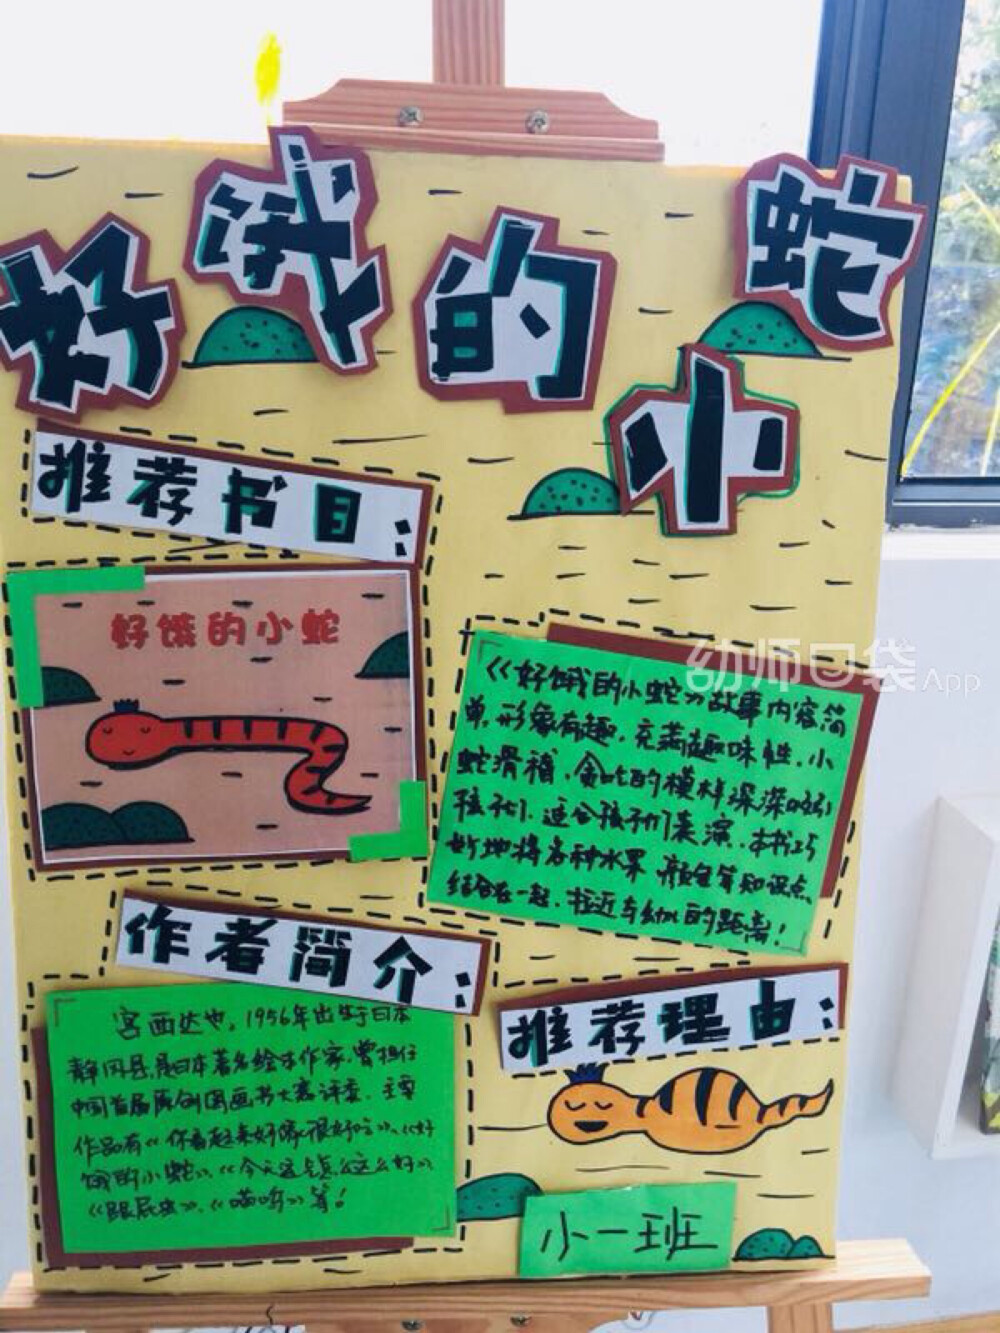 好饿的小蛇
推荐书目:
好饿的小蛇
《好饿的小蛇》故事内容简
单,形象有趣,充满趣味性,小
蛇滑稽、贪吃的模样深深吸引
孩子们,适合孩子们表演,本书巧
妙地将各种水果、颜色等知识点
结合在一起,拉近与幼儿的距离!
作者简介:
宫西达也,1956年出生于日本
静冈县,是日本著名绘本作家,曾担任
中国首届原创图画书大赛评委,主要
作品有《你看起来好像很好吃》、《好
饿的小蛇》、《今天运气怎么这么好》
《跟屁虫》、《喵呜》等!
推荐理由:
小一班
幼师口袋App